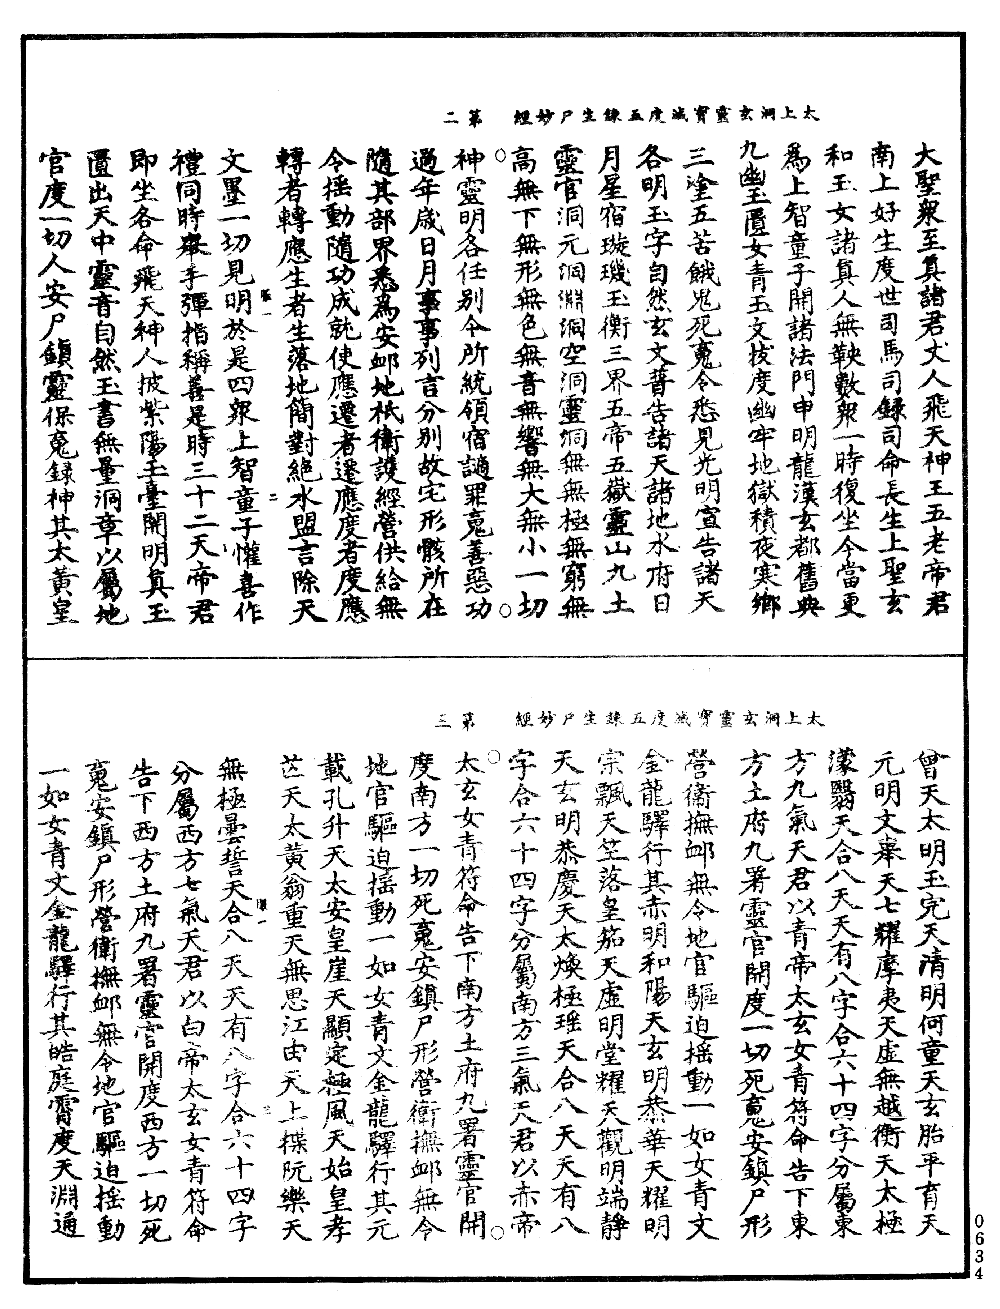 太上洞玄靈寳滅度五錬生尸妙經　第二
大聖衆至真諸君丈人飛天神王五老帝君
南上好生度世司馬司錄司命長生上聖玄
和玉女諸真人無鞅數衆一時復坐今當更
爲上智童子開諸法門申明龍漢玄都舊典
九幽玉匱女青玉文拔度幽牢地獄積夜寒鄉
三塗五苦餓鬼死䰟令悉見光明宣告諸天
各明玉字自然玄文普告諸天諸地水府日
月星宿璇璣玉衡三界五帝五嶽靈山九土
靈官洞元洞淵洞空洞靈洞無無極無窮無
高無下無形無色無音無響無大無小一切
神靈明各任别令所統領宿謫罪䰟善惡功
過年歲日月事事列言分别故宅形骸所在
隨其部界悉爲安卹地祇衛護經營供給無
令揺動隨功成就使應遷者遷應度者度應
轉者轉應生者生落地簡對絕水盟言除天
文墨一切見明於是四衆上智童子懽喜作
禮同時舉手彈指稱善是時三十二天帝君
即坐各命飛天神人披紫陽玉臺開明真玉
匱出天中靈音自然玉書無量洞章以屬地
官度一切人安尸鎮靈保䰟錄神其太黃皇
太上洞玄靈寳滅度五錬生尸妙經　第三
曾天太明玉完天清明何童天玄胎平育天
元明文舉天七耀摩夷天虚無越衡天太極
濛翳天合八天天有八字合六十四字分屬東
方九氣天君以青帝太玄女青符命告下東
方土府九署靈官開度一切死䰟安鎮尸形
營衛撫卹無令地官驅迫揺動一如女青文
金龍驛行其赤明和陽天玄明恭華天耀明
宗飄天竺落皇笳天虚明堂耀天觀明端靜
天玄明恭慶天太煥極瑶天合八天天有八
字合六十四字分屬南方三氣天君以赤帝
太玄女青符命告下南方土府九署靈官開
度南方一切死䰟安鎮尸形營衛撫卹無令
地官驅迫揺動一如女青文金龍驛行其元
載孔升天太安皇崖天顯定極風天始皇孝
芒天太黃翁重天無思江由天上揲阮樂天
無極曇誓天合八天天有八字合六十四字
分屬西方七氣天君以白帝太玄女青符命
告下西方土府九署靈官開度西方一切死
䰟安鎮尸形營衛撫卹無令地官驅迫揺動
一如女青文金龍驛行其皓庭霄度天淵通
0634